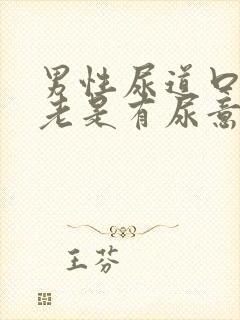 男性尿道口
老是有尿意
王芬